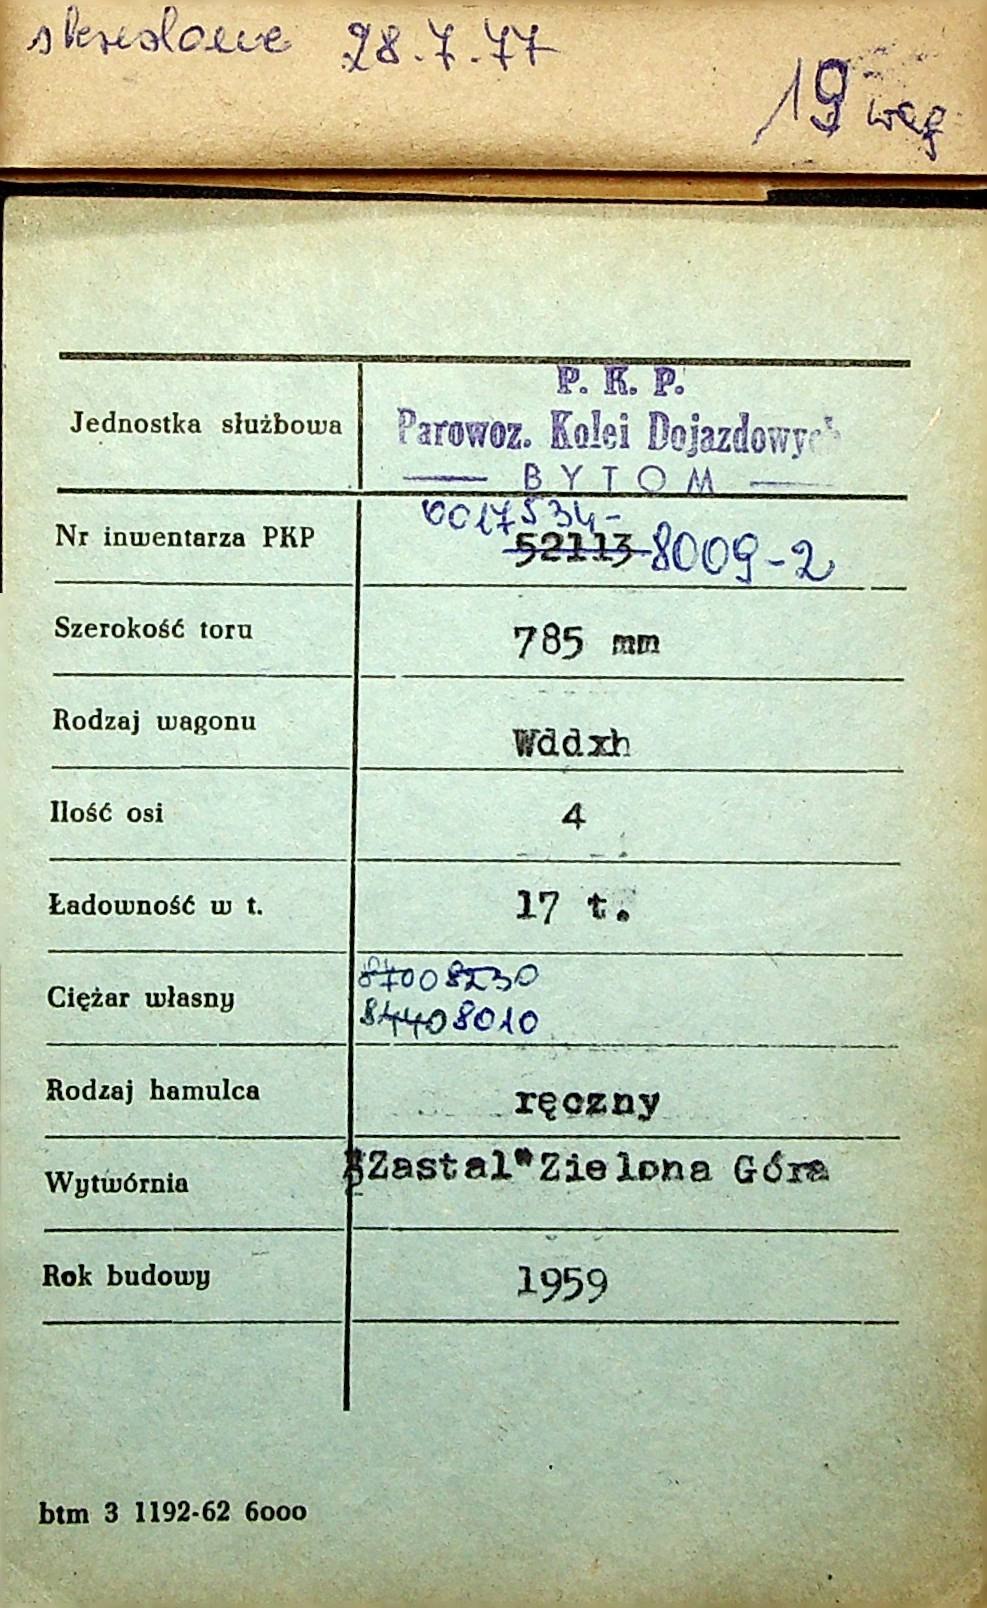 skreślone 28.7.77
19 wag
Jednostka służbowa
P. K. P.
Parowoz. Kolei Dojazdowych
BYTOM
Nr inwentarza PKP
0017534-
52113 8009-2
Szerokość toru
785 mm
Rodzaj wagonu
Wddxh
Ilość osi
4
Ładowność w t.
17 t.
Ciężar własny
8700 8230
8440 8010
Rodzaj hamulca
ręczny
Wytwórnia
"Zastal" Zielona Góra
Rok budowy
1959
btm 3 1192-62 6ooo